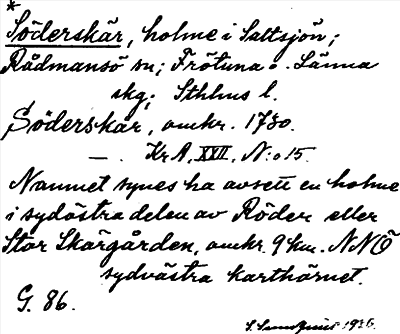 *
Söderskär, holme i Saltsjön;
Rådmansö sn; Frötuna o. Länna
skg; Sthlms l.
Söderskär, omkr. 1780.
—. Kr A, XXII, N:o 15.
Namnet synes ha avsett en holme
i sydöstra delen av Röder eller
Stor Skärgården, omkr. 9 km. NNÖ
sydvästra karthörnet.
G. 86.
1936.